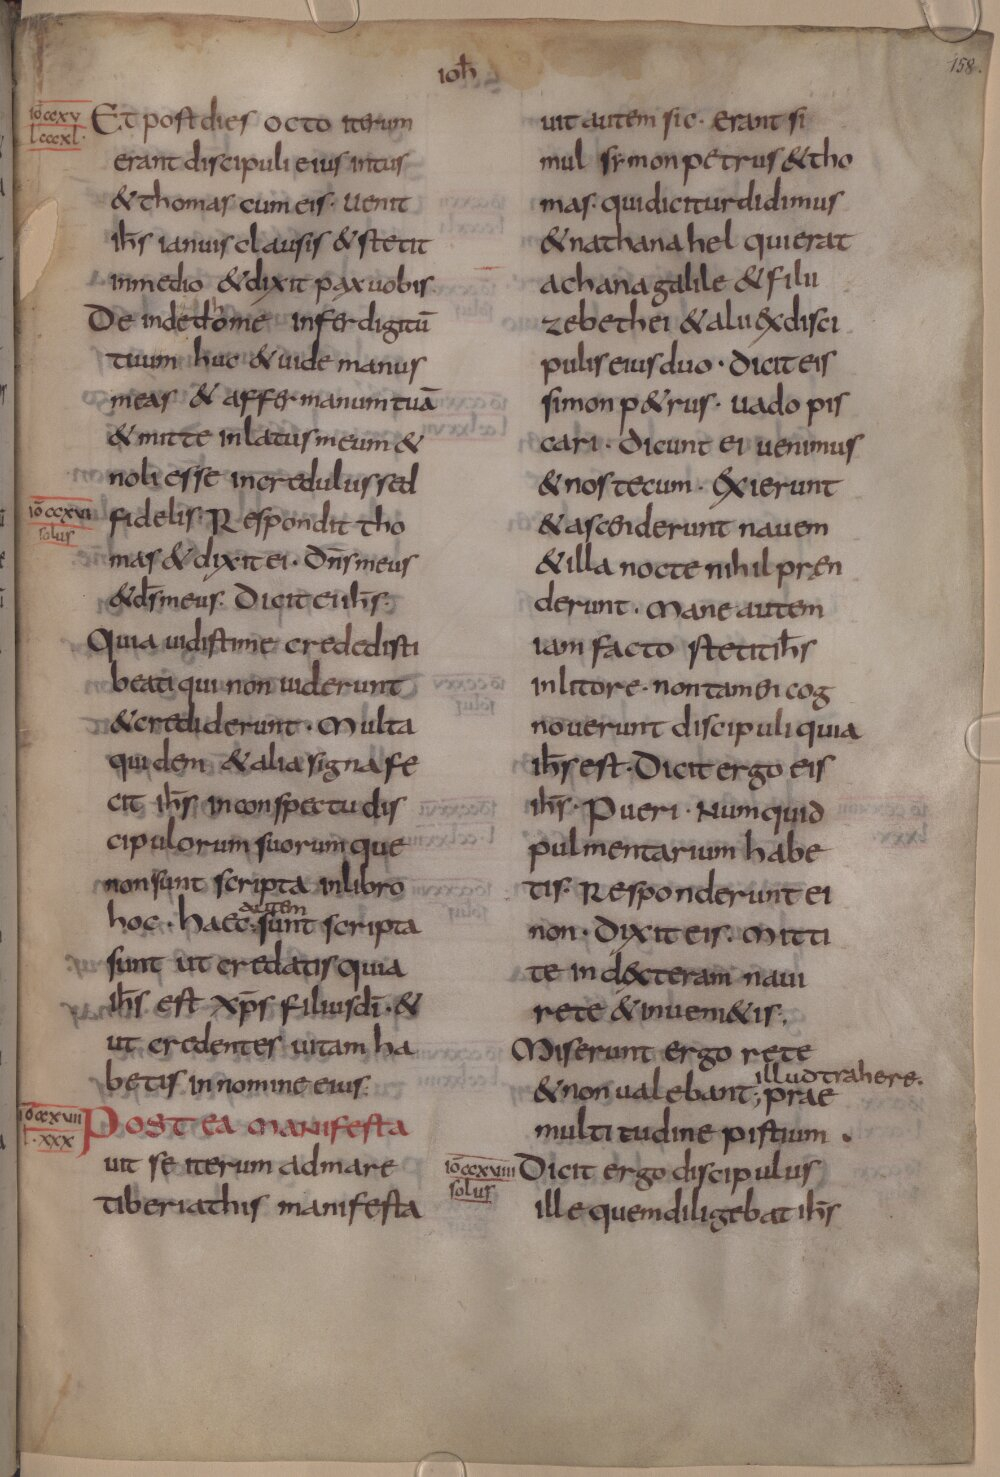 ioh̄
158.
iō ccxv
l cccxl·
Et post dies octo iterum
erant discipuli eius intus
& thomas cum eis· Uenit
ih̄s ianuis clausis & stetit
in medio & dixit pax uobis
Deinde thome infer digitū
tuum huc & uide manus
meas & affer manum tuā
& mitte in latus meum &
noli esse incredulus sed
iō ccxvi
solus
fidelis· Respondit tho
mas & dixit ei· Dn̄s meus
& ds̄ meus· Dicit ei ih̄s·
Quia uidisti me credidisti
beati qui non uiderunt
& crediderunt· Multa
quidem & alia signa fe
cit ih̄s in conspectu dis
cipulorum suorum que
non sunt scripta in libro
autem
hoc· haec· sunt scripta
sunt ut credatis quia
ih̄s est xp̄s filius dī· &
ut credentes uitam ha
betis in nomine eius·
iō ccxvii
l·xxx
Post ea manifesta
uit se iterum ad mare
tiberiathis manifesta
uit autem sic· erant si
mul symon petrus & tho
mas· qui dicitur didimus
& nathanahel qui erat
a chana galile & filii
zebethei & alii ex disci
pulis eius duo· Dicit eis
simon p&rus· uado pis
cari· Dicunt ei uenimus
& nos tecum· Exierunt
& ascenderunt nauem
& illa nocte nihil pren
derunt· Mane autem
iam facto stetit ih̄s
in litore· non tamen cog
nouerunt discipuli quia
ih̄s est· Dicit ergo eis
ih̄s· Pueri· Numquid
pulmentarium habe
tis· Responderunt ei
non· Dixit eis· Mitti
te in dexteram naui
rete & inueni&is;
Miserunt ergo rete
illud trahere·
& non ualebant; prae
multitudine pistium·
iō ccxviii
solus
Dicit ergo discipulus
ille quem diligebat ih̄s